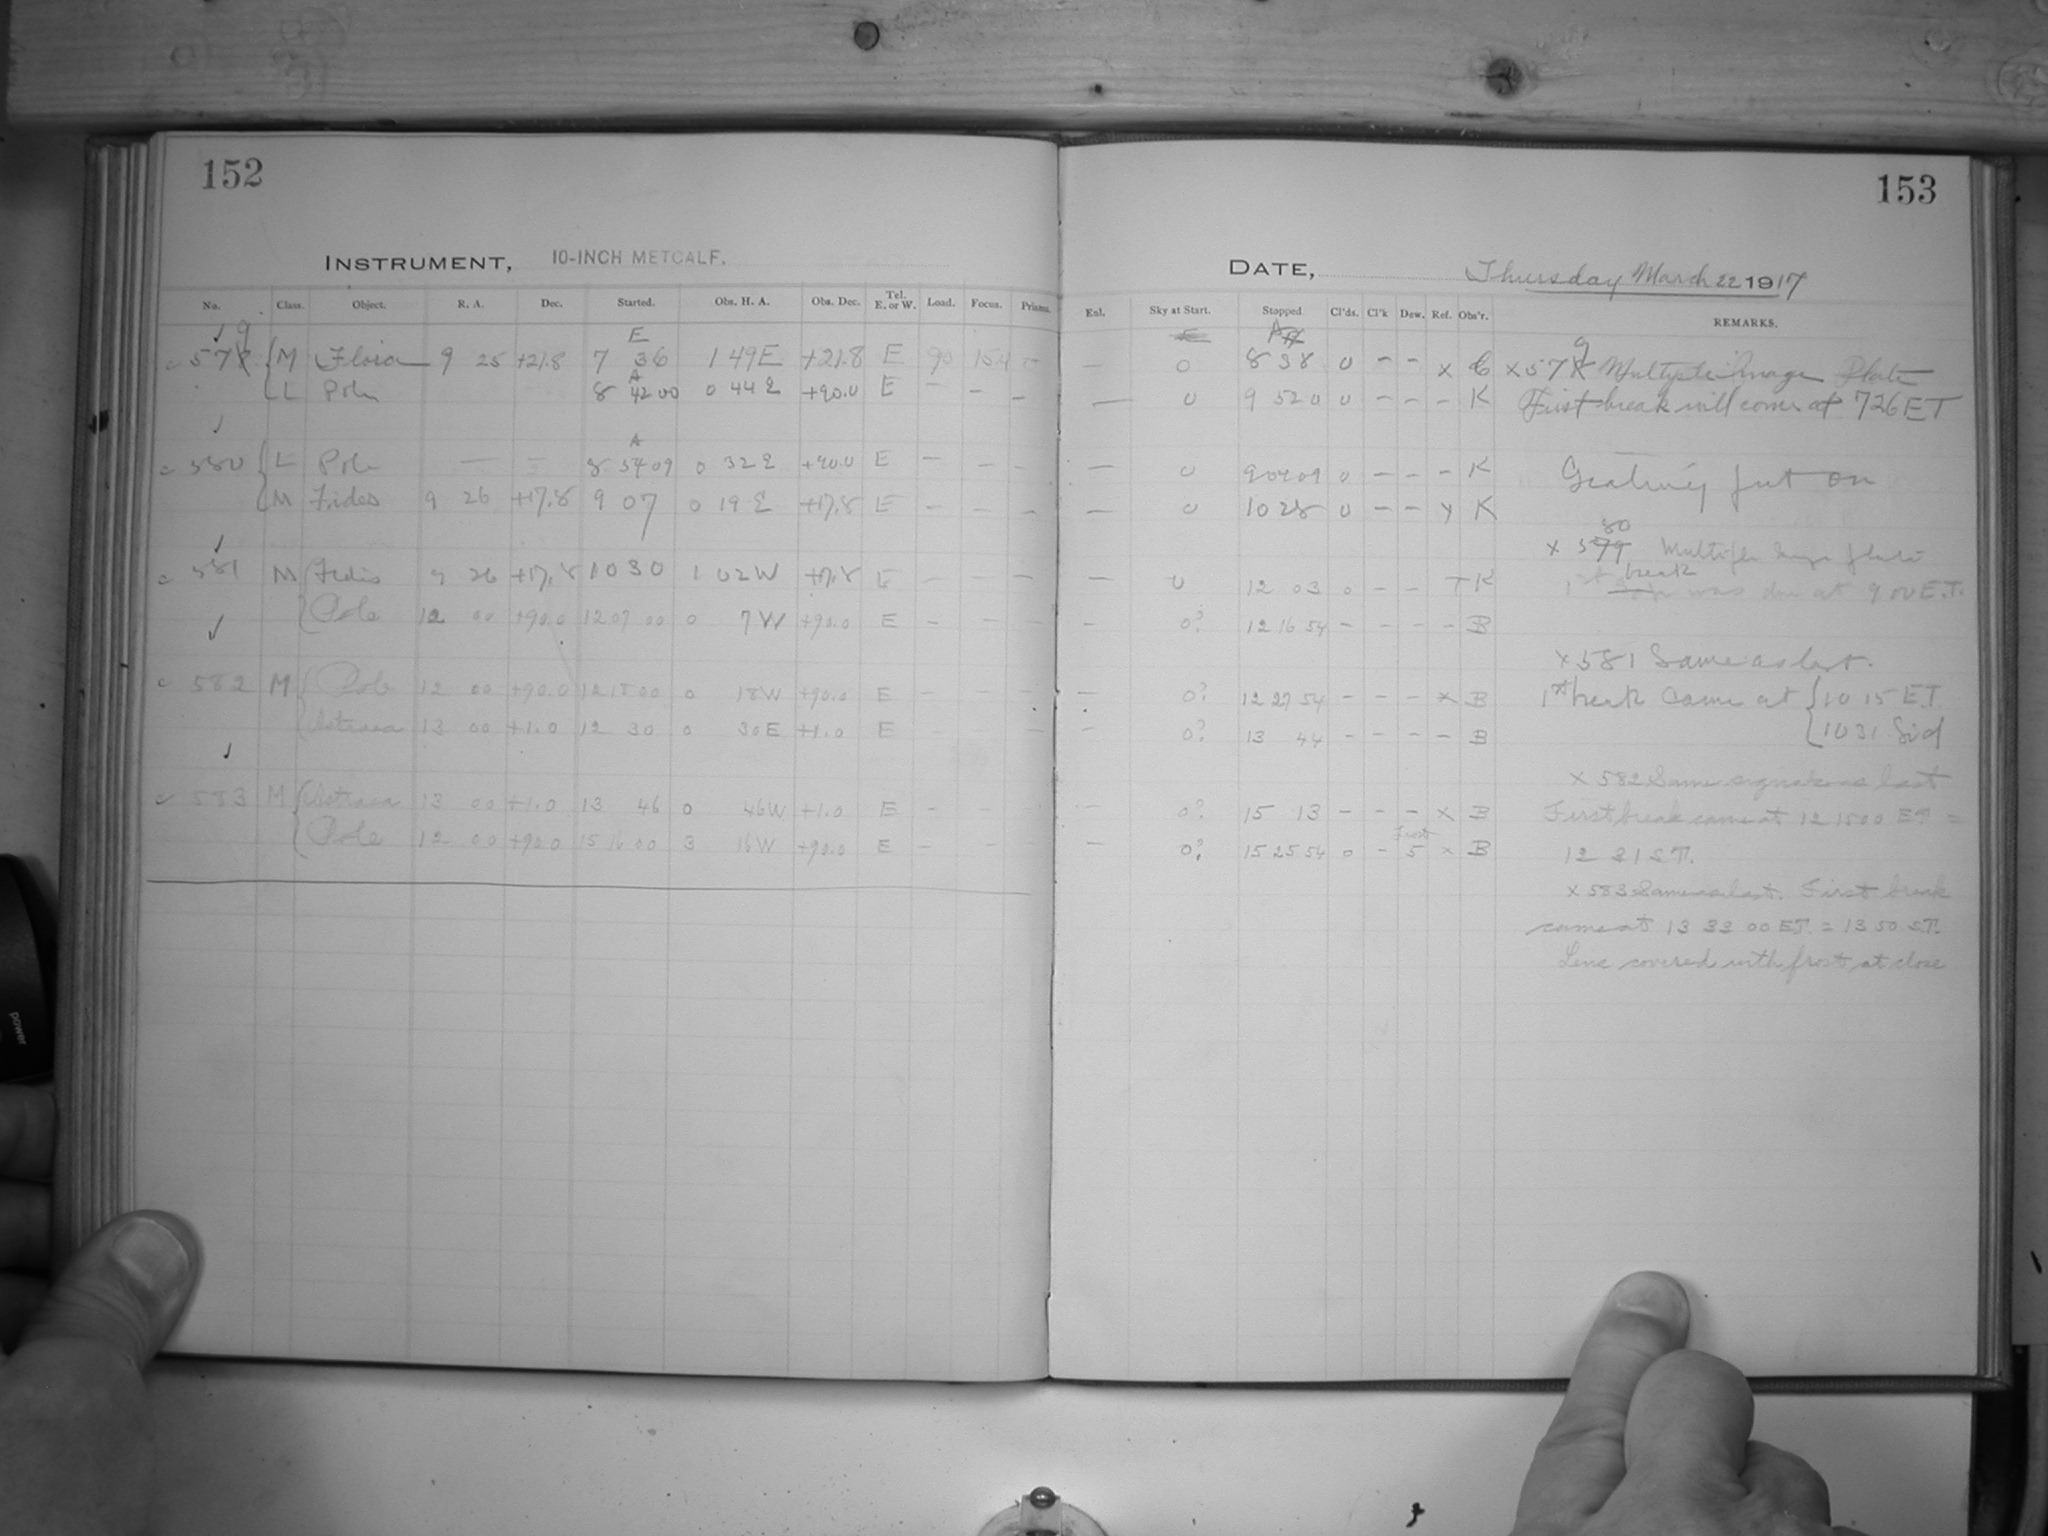 152
INSTRUMENT, 10-INCH METCALF.
No. Class. Object. R. A. Dec. Started. Obs. H. A. Obs. Dec. Tel. E. or W. Load. Focus. Prisms.
E
579 M Flora 9 25 +21.8 7 36 1 49E +21.8 E 90 154
A
L Pole 8 42 00 0 44 E +90.0 E — — —
A
580 L Pole — — 8 54 09 0 32 E +90.0 E — — —
M Fides 9 26 +17.8 9 07 0 19 E +17.8 E — — —
581 M Fides 9 26 +17.8 10 30 1 02W +17.8 E — — —
Pole 12 00 +90.0 12 07 00 0 7W +90.0 E — — —
582 M Pole 12 00 +90.0 12 18 00 0 18W +90.0 E — — —
Astraea 13 00 +1.0 12 30 0 30E +1.0 E — — —
583 M Astraea 13 00 +1.0 13 46 0 46W +1.0 E — — —
Pole 12 00 +90.0 15 16 00 3 16W +90.0 E — — —
153
DATE, Thursday March 22 1917
Enl. Sky at Start. Stopped Cl'ds. Cl'k Dew. Ref. Obs'r. REMARKS.
— 0 8 38 0 — — x C x 579 Multiple Image Plate
— 0 9 52 0 0 — — — K First break will come at 7 26 ET
— 0 9 04 09 0 — — — K Grating put on
— 0 10 28 0 — — x K
80
x 579 Multiple Image plate
— 0 12 03 0 — — K 1st break was due at 9 00 E.T.
— 0? 12 16 54 — — — — B
x 581 Same as last.
— 0? 12 27 54 — — — x B 1st break came at 10 15 ET
— 0? 13 44 — — — — B 10 31 Sid
x 582 Same as last
— 0? 15 13 — — — x B First break came at 12 15 00 ET =
Frost
— 0? 15 25 54 0 — 5 x B 12 31 S.T.
x 583 Same as last. First break
came at 13 33 00 ET. = 13 50 S.T.
Lens covered with frost at close
power